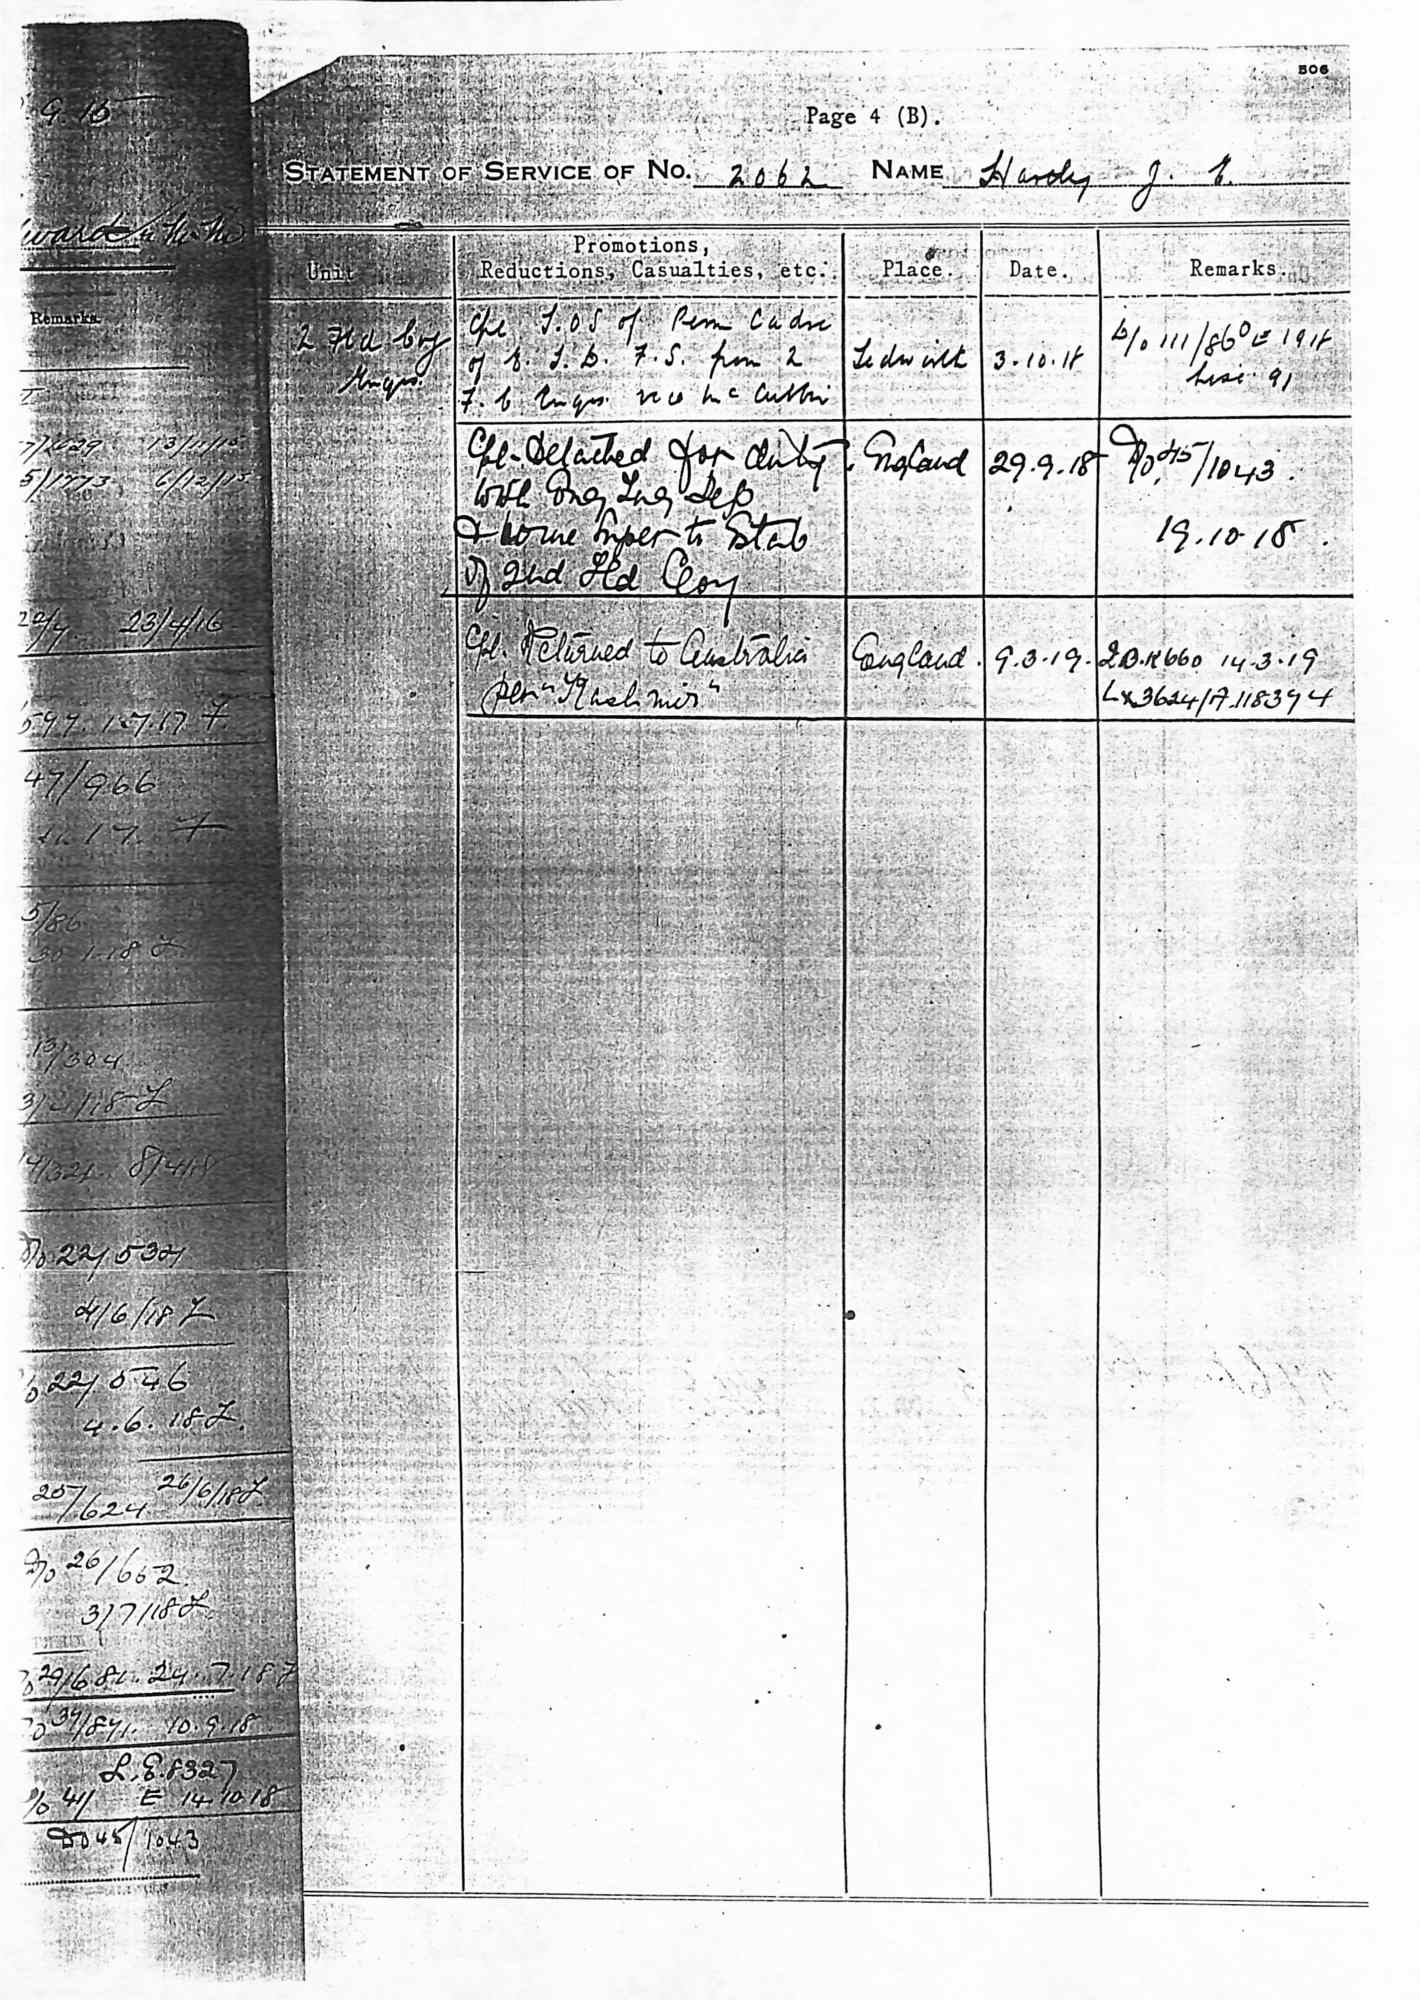 506
Page 4 (B).
STATEMENT OF SERVICE OF No. 2062 NAME Hardy J. E.
Unit
Promotions,
Reductions, Casualties, etc.
Place.
Date.
Remarks.
2 Fld Coy
Engrs.
Cpl T.O.S of Perm Cadre
of E. T. D. F. S. from 2
F. C Engrs. vice McCubbin
3.10.18
D/o 111/86 E 1918
List 91
Cpl. Detached for duty
with Eng Tng Dep
& borne Super to Estab
of 2nd Fld Coy
England
29.9.18
D/o 45/1043.
19.10.18.
Cpl. Returned to Australia
per "Kashmir"
England.
9.3.19.
14.3.19
9.15
Remarks
13/11/15
6/12/15
23/4/16
47/966
5/86
30.1.18
13/304
8/4/18
DO 22/534
4/6/18
22/546
4.6.18
25/624 26/6/18
DO 26/652
3/7/18
29/681 24.7.18
37/871. 10.9.18
L.E.8327
41 E 14.10.18
DO 45/1043